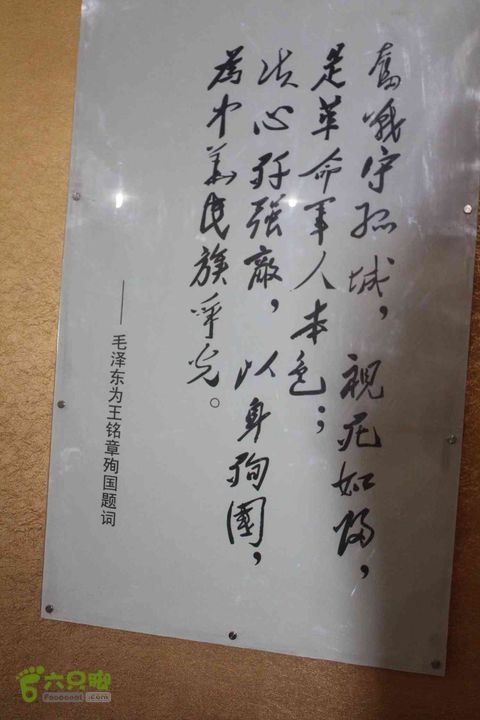 奮戰守孤城，視死如歸，
是革命軍人本色；
决心歼强敵，以身殉國，
為中華民族爭光。
——毛泽东为王铭章殉国题词
六只脚
Foooooot.com